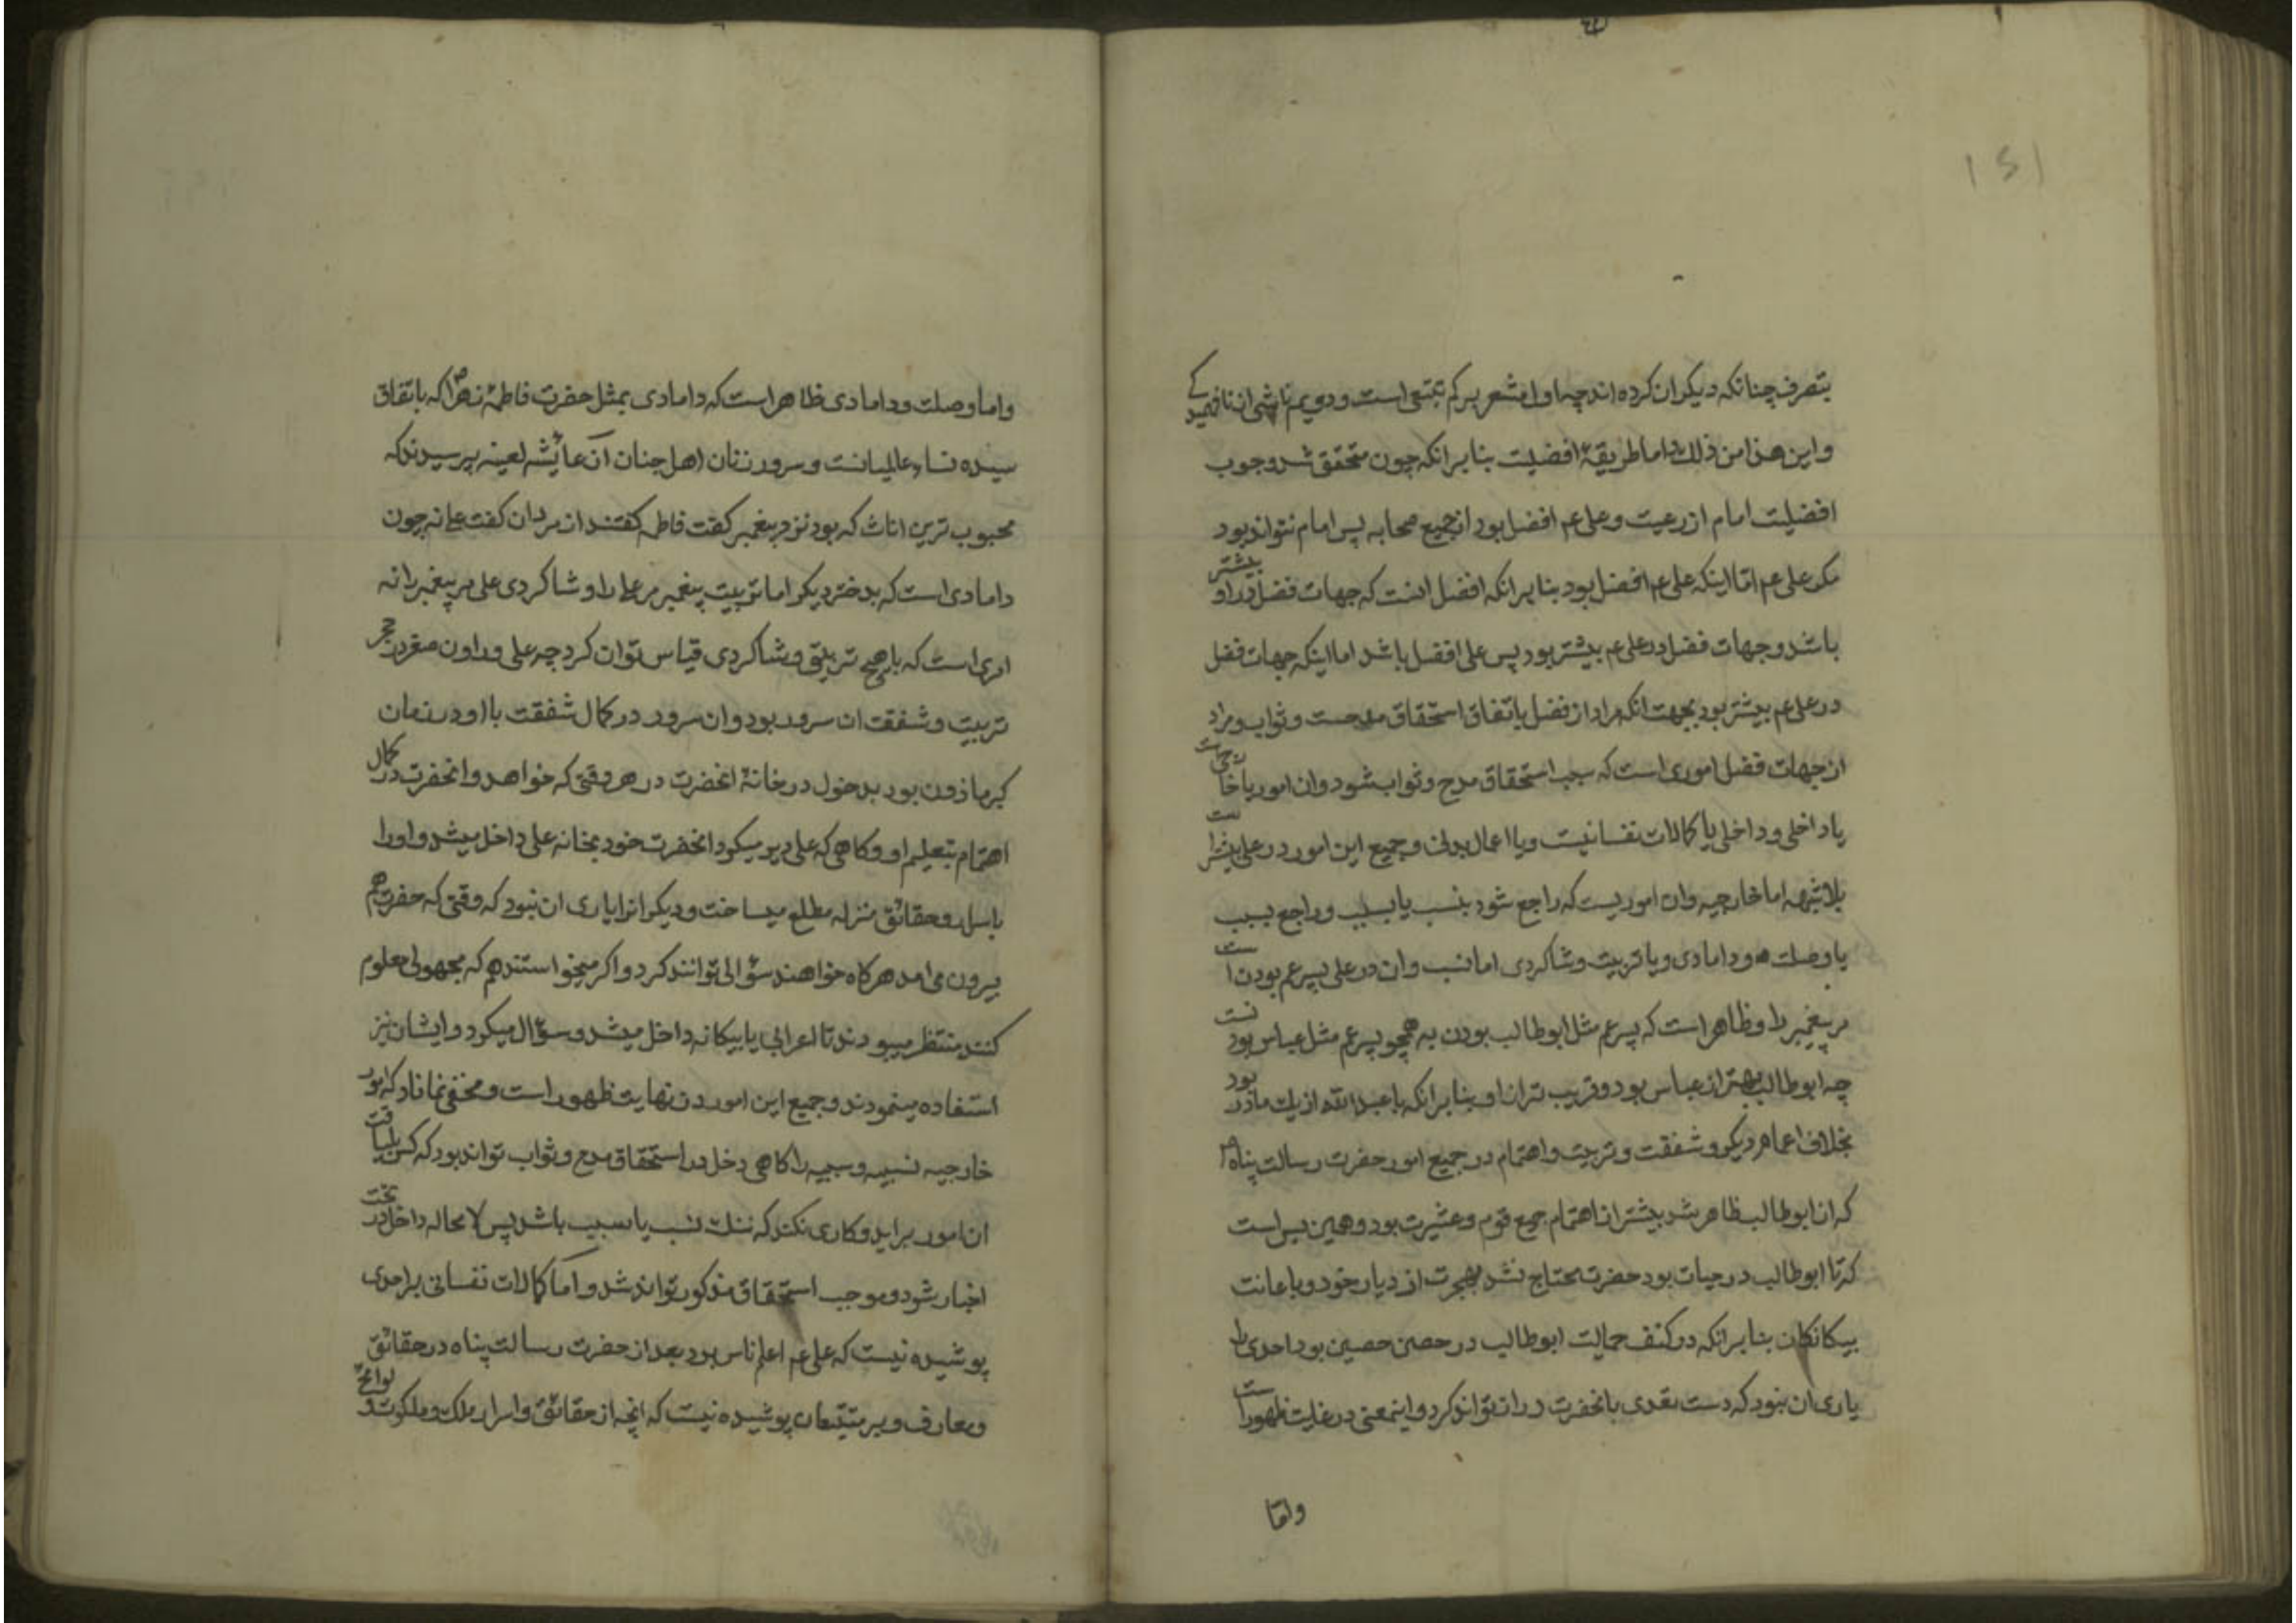 ۱۵۱
بتصرف چنانکه دیکران کرده اند چه اول مشعر بر کم تتبعی است و دویم ناشی از نافهمیدکے
و این هذا من ذلك اما طریقهٔ افضلیت بنا بر انکه چون متحقق شد وجوب
افضلیت امام از رعیت و علی عم افضل بود از جمیع صحابه پس امام نتواند بود
مکر علی عم امّا اینکه علی عم افضل بود بنا بر انکه افضل انست که جهات فضل در او بیشتر
باشد و جهات فضل در علی عم بیشتر بود پس علی افضل باشد اما اینکه جهات فضل
در علی عم بیشتر بود بجهت انکه مراد از فضل باتفاق استحقاق مدحست و ثواب و مراد
از جهات فضل اموری است که سبب استحقاق مدح و ثواب شود و ان امور یا خارجی است
یا داخلی و داخلی یا کمالات نفسانیت و یا اعمال بدنی و جمیع این امور در علی بیشتر است
بلا شبهه اما خارجیه وان اموریست که راجع شود بنسب یا بسبب و راجع بسبب
یا وصلت و دامادی و یا تربیت و شاکردی اما نسب وان در علی پسر عم بودن است
مر پیغمبر را و ظاهر است که پسر عم مثل ابوطالب بودن به همچو پسر عم مثل عباس بود نست
چه ابوطالب بهتر از عباس بود و قریب تر از او بنا بر انکه با عبدالله از یك مادر بود
بخلاف اعمام دیکر و شفقت و تربیت و اهتمام در جمیع امور حضرت رسالت پناه ص
که از ابوطالب ظاهر شد بیشتر از اهتمام جمیع قوم و عشیرت بود و همین بس است
که تا ابوطالب در حیات بود حضرت محتاج نشد بهجرت از دیار خود و باعانت
بیکانکان بنا بر انکه در کنف حمایت ابوطالب در حصن حصین بود احدی را
یاری ان نبود که دست تعدی بانحضرت دراز تواند کرد و اینمعنی در غایت ظهور است
وامّا
واما وصلت و دامادی ظاهر است که دامادی بمثل حضرت فاطمهٔ زهرا ص که باتفاق
سیده نساء عالمیانست و سرور زنان اهل جنان از عایشه لعینه پرسیدند که
محبوب ترین اناث که بود نزد پیغمبر کفت فاطمه کفتند از مردان کفت علی نه چون
دامادی است که بدختر دیکر اما تربیت پیغمبر مر علی را و شاکردی علی مر پیغمبر را نه
امری است که با هیچ تربیتی و شاکردی قیاس توان کرد چه علی در اوان صغر در حجر
تربیت و شفقت ان سرور بود و ان سرور در کمال شفقت با او در زمان
کبر ماذون بود بدخول در خانهٔ انحضرت در هر وقتی که خواهد و انحضرت در کمال
اهتمام بتعلیم او و کاهی که علی دیر میکرد انحضرت خود بخانه علی داخل میشد و او را
باسرار و حقائق منزله مطلع میساخت و دیکرانرا یاری ان نبود که وقتی که حضرت هم
بیرون می امد هر کاه خواهند سؤالی توانند کرد و اکر میخواستند هم که مجهولی معلوم
کنند منتظر میبودند تا اعرابی یا بیکانه داخل میشد و سؤال میکرد و ایشان نیز
استفاده مینمودند و جمیع این امور در نهایت ظهور است و مخفی نماناد که امور
خارجیه نسبیه و سببیه را کاهی دخل در استحقاق مدح و ثواب تواند بود که کس بلیاقت
ان امور براید و کاری نکند که ننك نسب یا سبب باشد پس لا محاله داخل در تحت
اختیار شود و موجب استحقاق مذکور تواند شد و اما کمالات نفسانی بر احدی
پوشیده نیست که علی عم اعلم ناس بود بعد از حضرت رسالت پناه در حقائق
و معارف و بر متتبعان پوشیده نیست که انچه از حقائق و اسرار ملك و ملکوت و لوائح